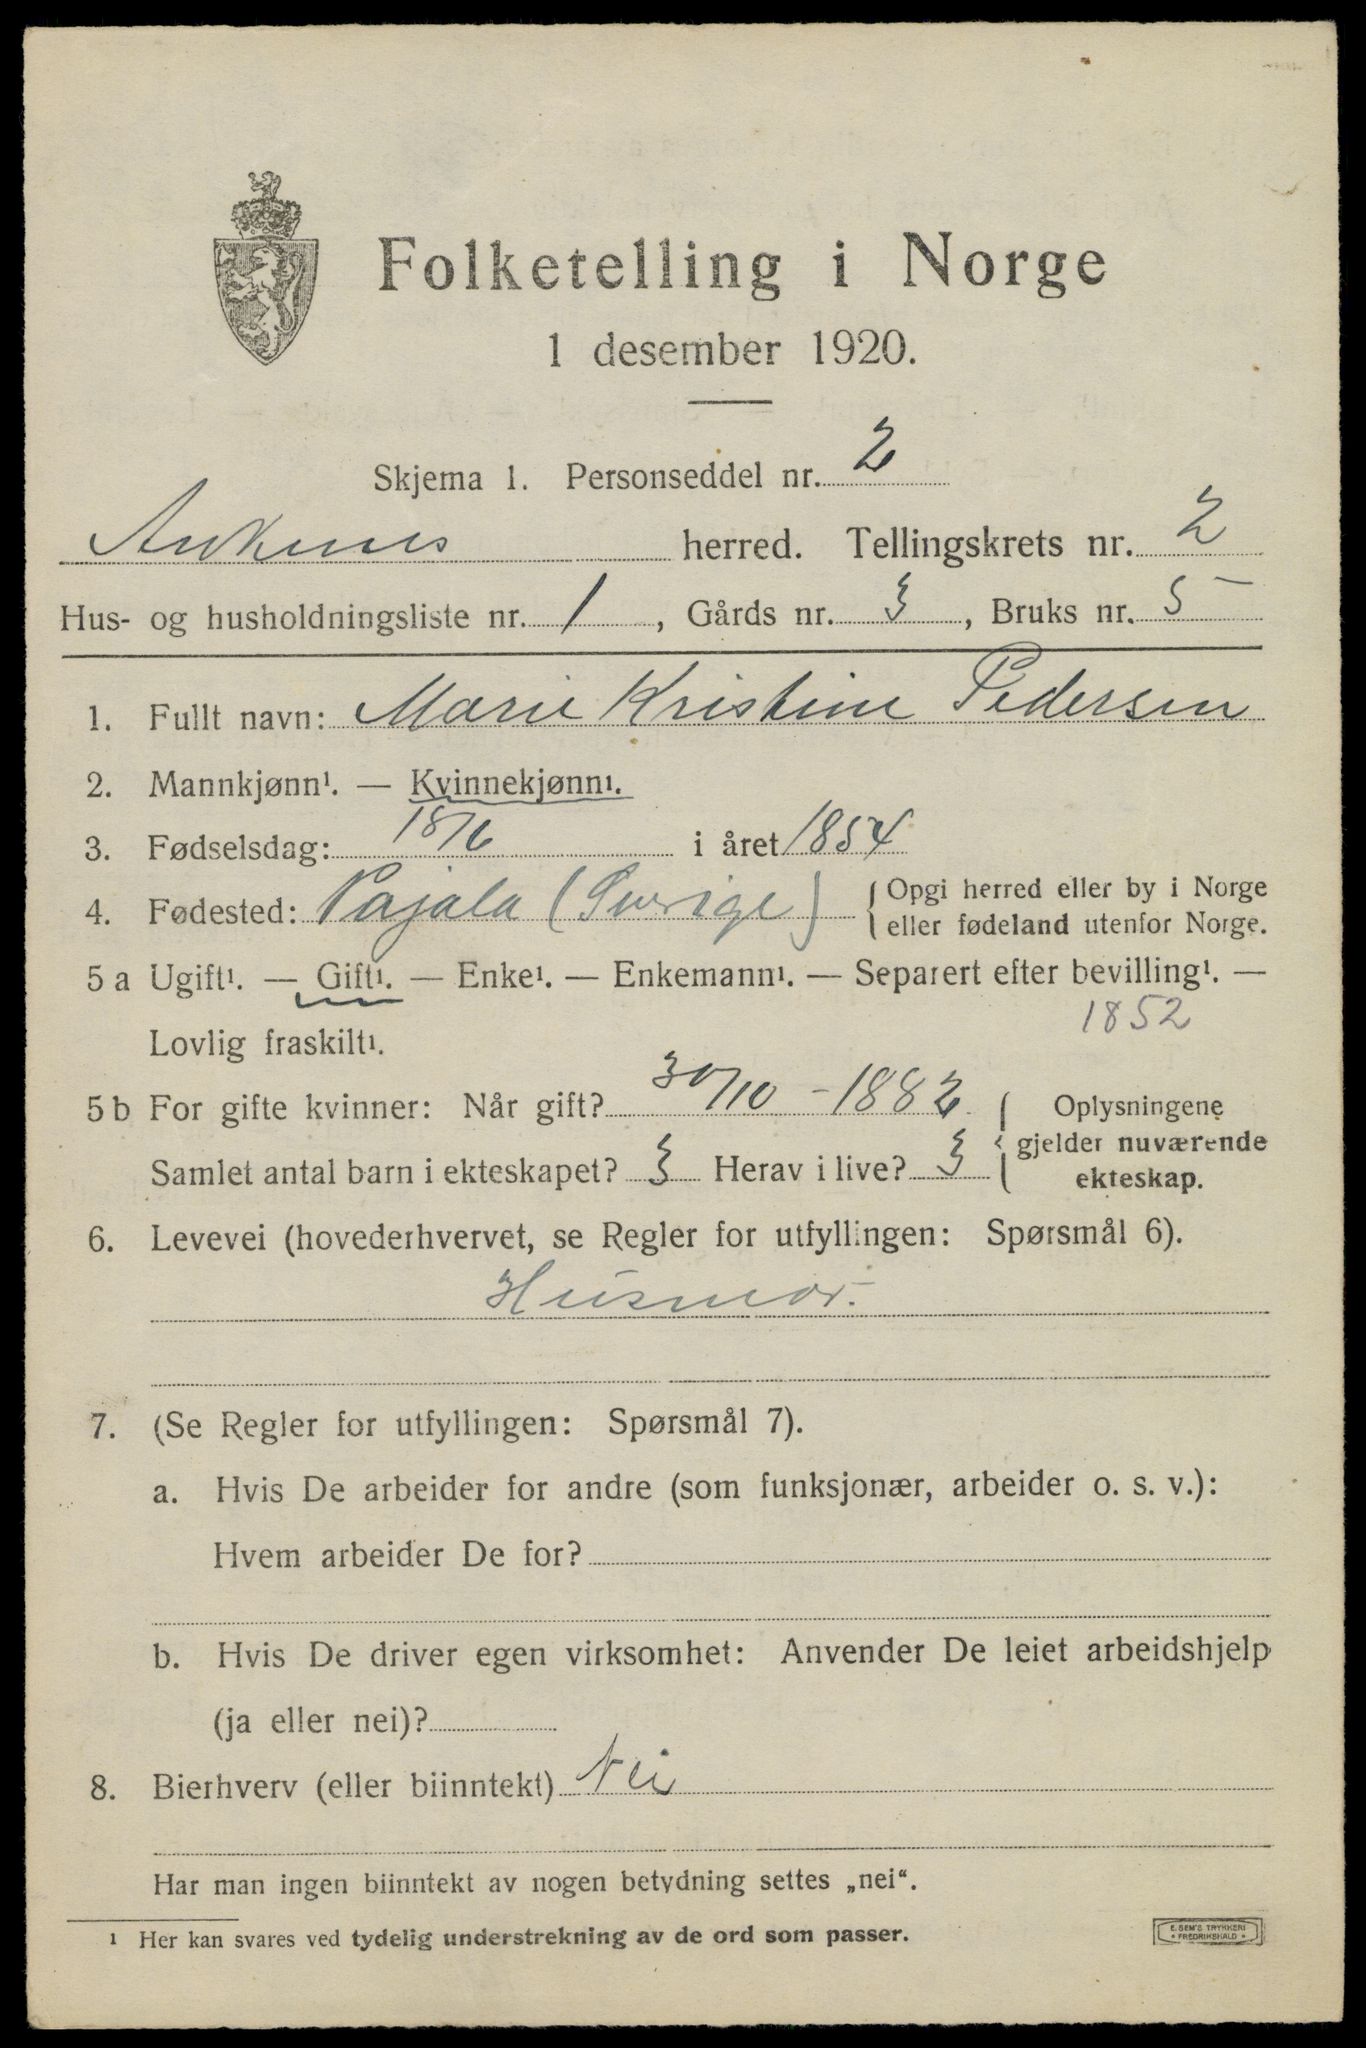 Folketelling i Norge
1 desember 1920.
Skjema 1. Personseddel nr. 2
Ankenes herred. Tellingskrets nr. 2
Hus- og husholdningsliste nr. 1, Gårds nr. 3, Bruks nr. 5
1. Fullt navn: Marie Kristine Pedersen
2. Mannkjønn¹. — Kvinnekjønn¹.
3. Fødselsdag: 18/6 i året 1854
4. Fødested: Pajala (Sverige) Opgi herred eller by i Norge
eller fødeland utenfor Norge.
5 a Ugift¹. — Gift¹. — Enke¹. — Enkemann¹. — Separert efter bevilling¹. —
Lovlig fraskilt¹. 1852
5 b For gifte kvinner: Når gift? 30/10 - 1882 Oplysningene
gjelder nuværende
ekteskap.
Samlet antal barn i ekteskapet? 3 Herav i live? 3
6. Levevei (hovederhvervet, se Regler for utfyllingen: Spørsmål 6).
Husmor.
7. (Se Regler for utfyllingen: Spørsmål 7).
a. Hvis De arbeider for andre (som funksjonær, arbeider o. s. v.):
Hvem arbeider De for?
b. Hvis De driver egen virksomhet: Anvender De leiet arbeidshjelp
(ja eller nei)?
8. Bierhverv (eller biinntekt) Nei
Har man ingen biinntekt av nogen betydning settes „nei“.
¹ Her kan svares ved tydelig understrekning av de ord som passer.
E. SEM'S TRYKKERI
* FREDRIKSHALD *